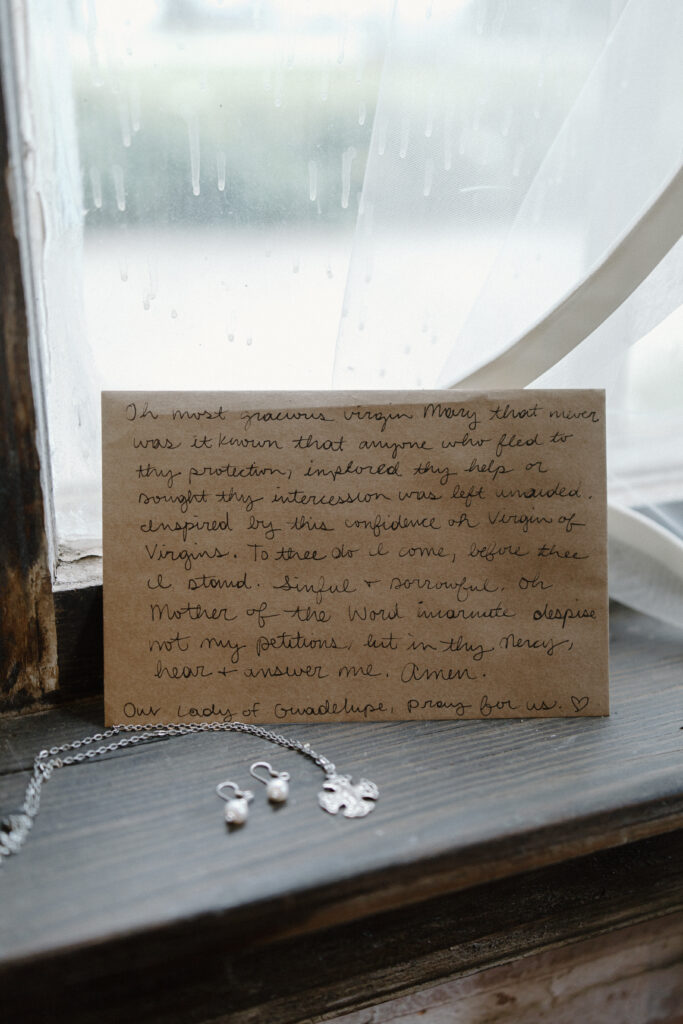 Oh most gracious virgin Mary that never
was it known that anyone who fled to
thy protection, implored thy help or
sought thy intercession was left unaided.
Inspired by this confidence oh Virgin of
Virgins. To thee do I come, before thee
I stand. Sinful + sorrowful. Oh
Mother of the Word incarnate despise
not my petitions, but in thy mercy,
hear + answer me. Amen.
Our Lady of Guadelupe, pray for us. ♡